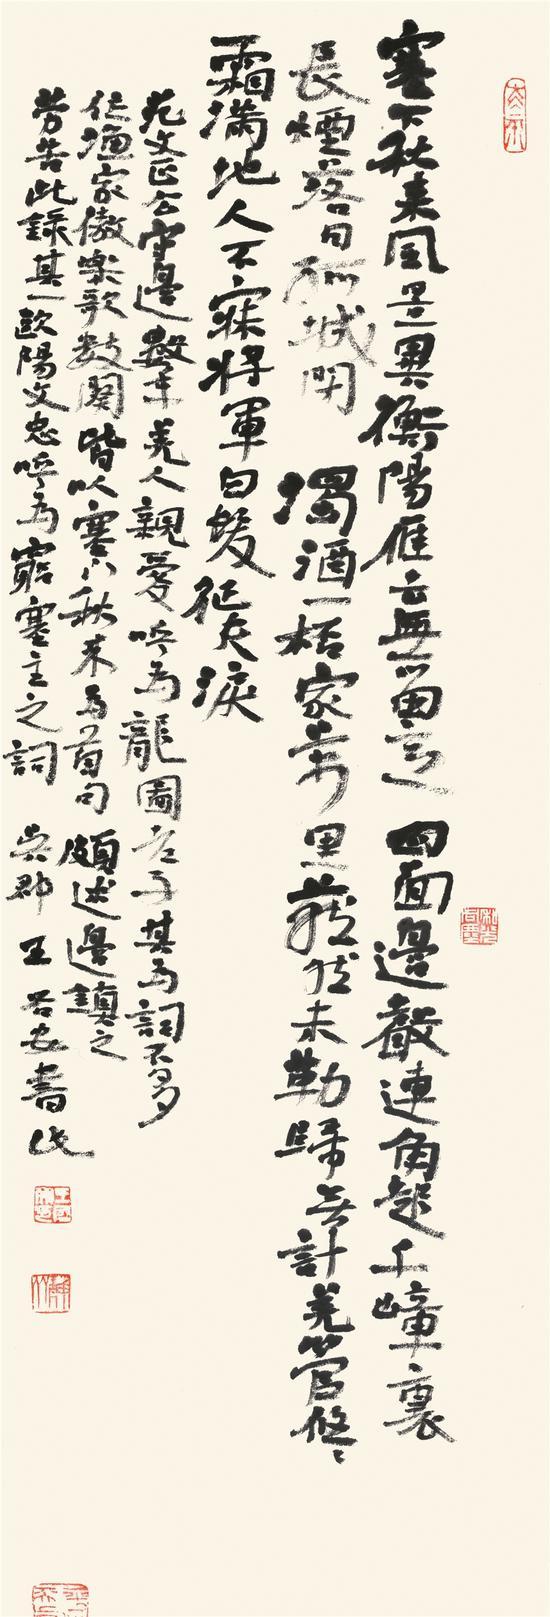 塞下秋来風景異衡陽雁去無留意 四面邊聲連角起千嶂裏
長煙落日孤城閉 濁酒一杯家萬里燕然未勒歸無計羌管悠〻
霜滿地人不寐將軍白髮征夫淚
范文正公守邊數年羌人親愛呼為龍圖老子其為詞不多
作漁家傲樂歌數闋皆以塞下秋来為首句頗述邊鎮之
勞苦此錄其一歐陽文忠呼為窮塞主之詞 吳郡王